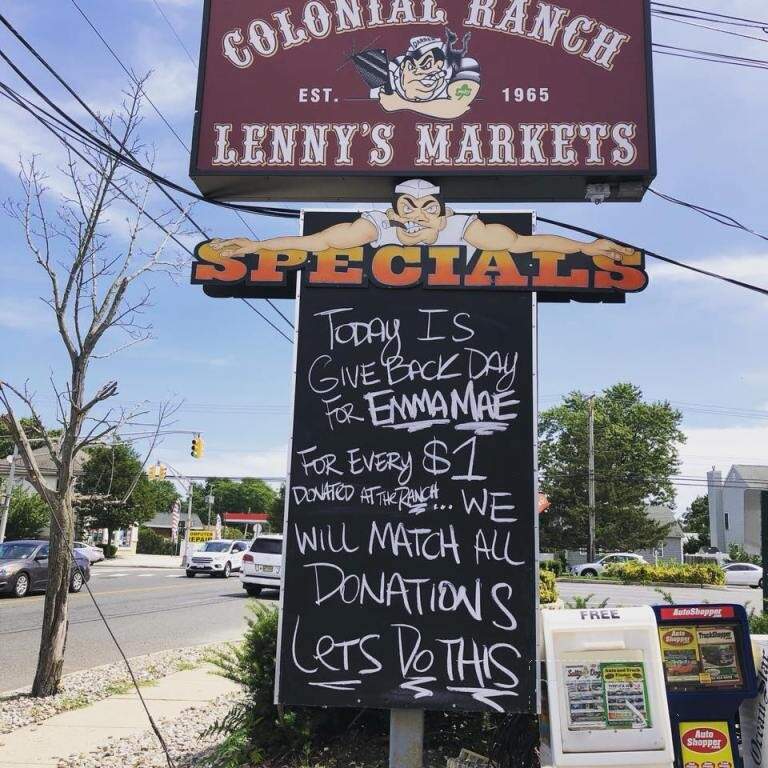 COLONIAL RANCH
EST. 1965
LENNY'S MARKETS
SPECIALS
TODAY IS
GIVE BACK DAY
FOR EMMA MAE
FOR EVERY $1
DONATED AT THE RANCH... WE
WILL MATCH ALL
DONATIONS
LETS DO THIS
FREE
AutoShopper
Auto
Shopper